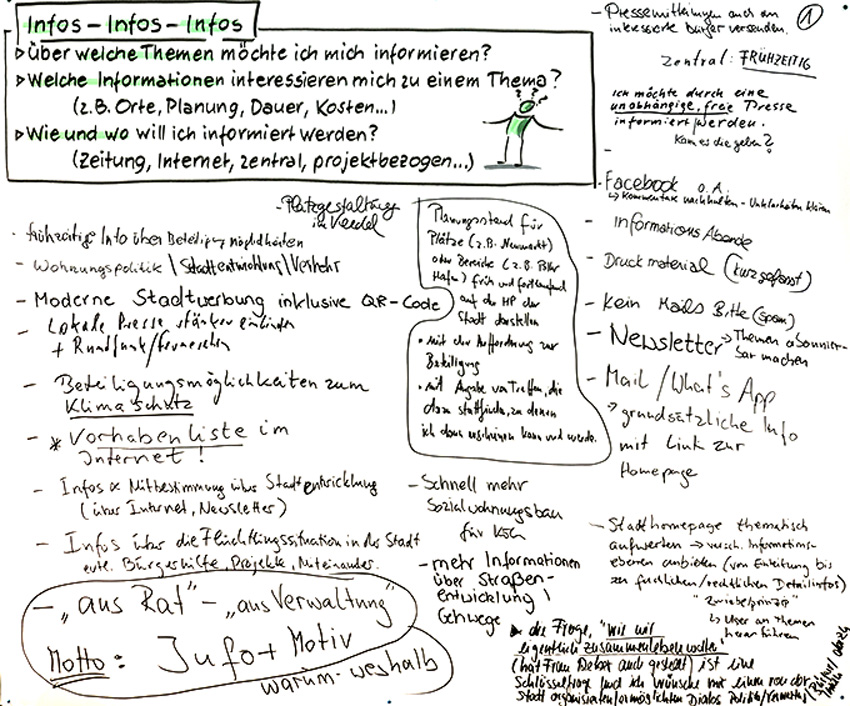 Infos – Infos – Infos
▹ Über welche Themen möchte ich mich informieren?
▹ Welche Informationen interessieren mich zu einem Thema?
(z.B. Orte, Planung, Dauer, Kosten...)
▹ Wie und wo will ich informiert werden?
(Zeitung, Internet, zentral, projektbezogen...)
- Platzgestaltung
im Veedel
· frühzeitige Info über Beteiligungsmöglichkeiten
- Wohnungspolitik \ Stadtentwicklung \ Verkehr
- Moderne Stadtwerbung inklusive QR-Code
- Lokale Presse stärker einbinden
+ Rundfunk/Fernsehen
- Beteiligungsmöglichkeiten zum
Klimaschutz
- * Vorhabenliste im
Internet!
- Infos & Mitbestimmung über Stadtentwicklung
(über Internet, Newsletter)
- Infos über die Flüchtlingssituation in der Stadt
evtl. Bürgeshilfe, Projekte, Miteinander.
- „aus Rat" - „aus Verwaltung"
Motto: Info + Motiv
warum - weshalb
Planungsstand für
Plätze (z.B. Neumarkt)
oder Bereiche (z.B.
Hafen) früh und fortlaufend
auf der HP der
Stadt darstellen
• mit der Aufforderung zur
Beteiligung
• mit Angabe von Treffen, die
dazu stattfinden, zu denen
ich dann erscheinen kann und werde.
- Schnell mehr
Sozialwohnungsbau
für Köln
- mehr Informationen
über Straßen-
entwicklung \
Gehwege
▸ die Frage, "wie wir
eigentlich zusammenleben wollen"
(hat Frau auch gestellt) ist eine
Schlüsselfrage und ich wünsche mir einen von der
Stadt organisierten/ermöglichten Dialog Politik/
- Pressemitteilungen auch an
interessierte Bürger versenden.
1
zentral: FRÜHZEITIG
ich möchte durch eine
unabhängige, freie Presse
informiert werden.
Kann es die geben?
-
· Facebook o.A.
↳ Kommentare - Unklarheiten klären
- Informations Abende
- Druckmaterial (kurzgefasst)
- Kein Mails Bitte (Spam)
- Newsletter → Themen abonnier-
bar machen
- Mail / What's App
→ grundsätzliche Info
mit Link zur
Homepage
- Stadthomepage thematisch
aufwerten → versch. Informations-
ebenen anbieten (von Einleitung bis
zu fachlichen/rechtlichen Detailinfos)
"Zwiebelprinzip"
↳ User an Themen
heranführen